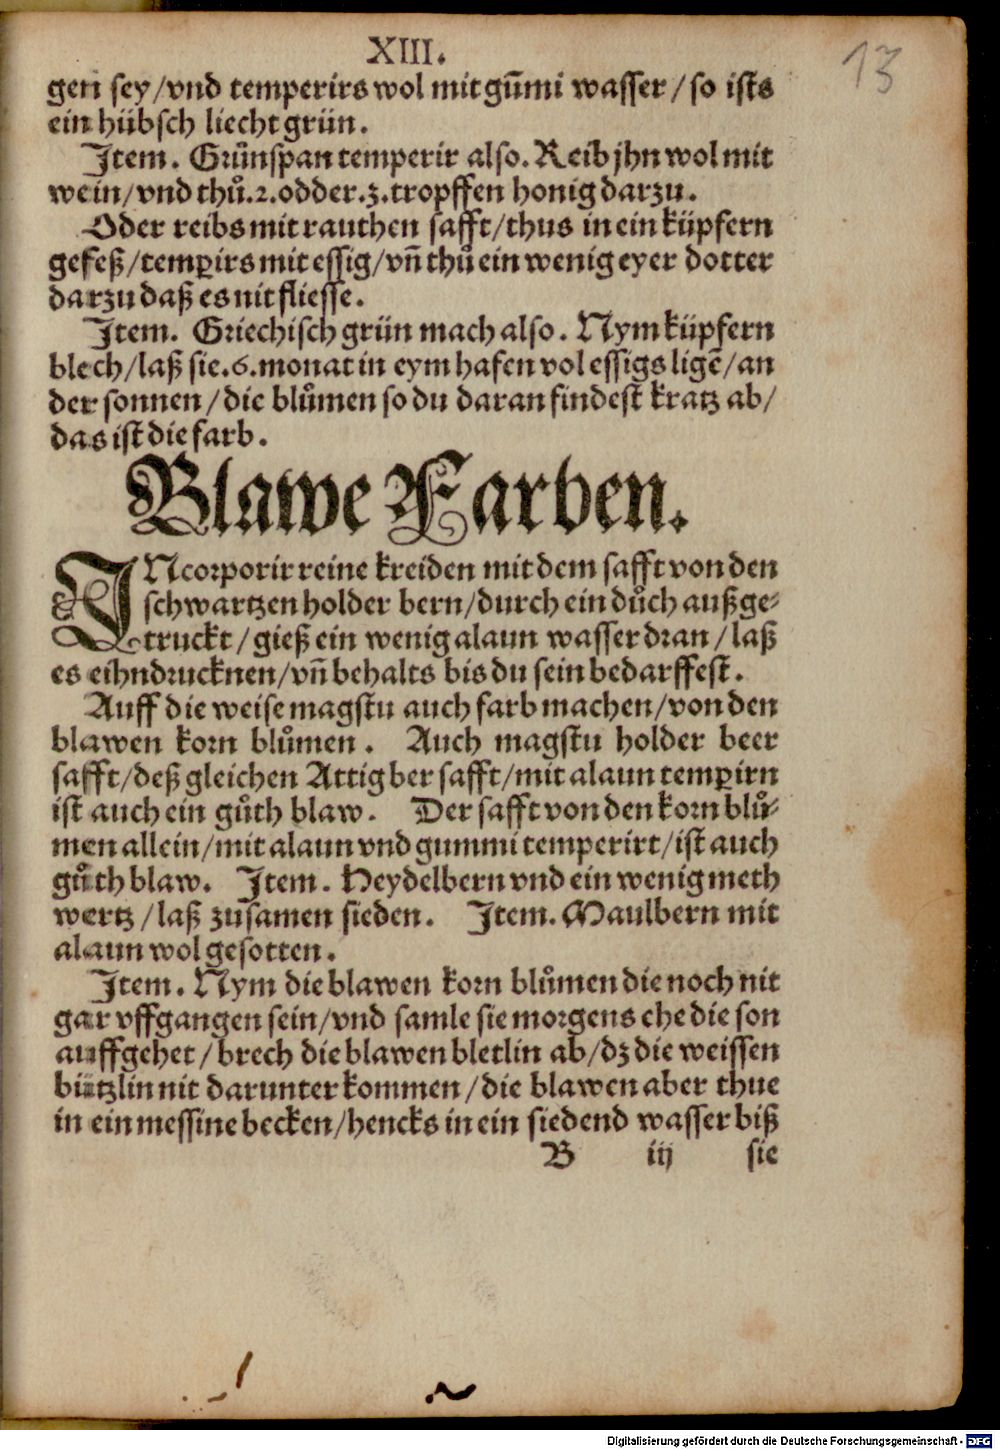 XIII.
13
gen sey/vnd temperirs wol mit gūmi wasser/so ists
ein hübsch liecht grün.
Item. Grůnspan temperir also. Reib jhn wol mit
wein/vnd thů.2.odder.3.tropffen honig darzu.
Oder reibs mit rauthen safft/thus in ein küpfern
gefeß/temꝑirs mit essig/vñ thů ein wenig eyer dotter
darzu daß es nit fliesse.
Item. Griechisch grün mach also. Nym küpfern
blech/laß sie.6.monat in eym hafen vol essigs ligē/an
der sonnen/die blůmen so du daran findest kratz ab/
das ist die farb.
Blawe Farben.
INcorporir reine kreiden mit dem safft von den
schwartzen holder bern/durch ein důch außge-
truckt/gieß ein wenig alaun wasser dran/laß
es eihndrucknen/vñ behalts bis du sein bedarffest.
Auff die weise magstu auch farb machen/von den
blawen korn blůmen. Auch magstu holder beer
safft/deß gleichen Attig ber safft/mit alaun temꝑirn
ist auch ein gůth blaw. Der safft von den korn blů-
men allein/mit alaun vnd gummi temperirt/ist auch
gůth blaw. Item. Heydelbern vnd ein wenig meth
wertz/laß zusamen sieden. Item. Maulbern mit
alaun wol gesotten.
Item. Nym die blawen korn blůmen die noch nit
gar vffgangen sein/vnd samle sie morgens ehe die son
auffgehet/brech die blawen bletlin ab/dz die weissen
bützlin nit darunter kommen/die blawen aber thue
in ein messine becken/hencks in ein siedend wasser biß
B iij sie
Digitalisierung gefördert durch die Deutsche Forschungsgemeinschaft - DFG